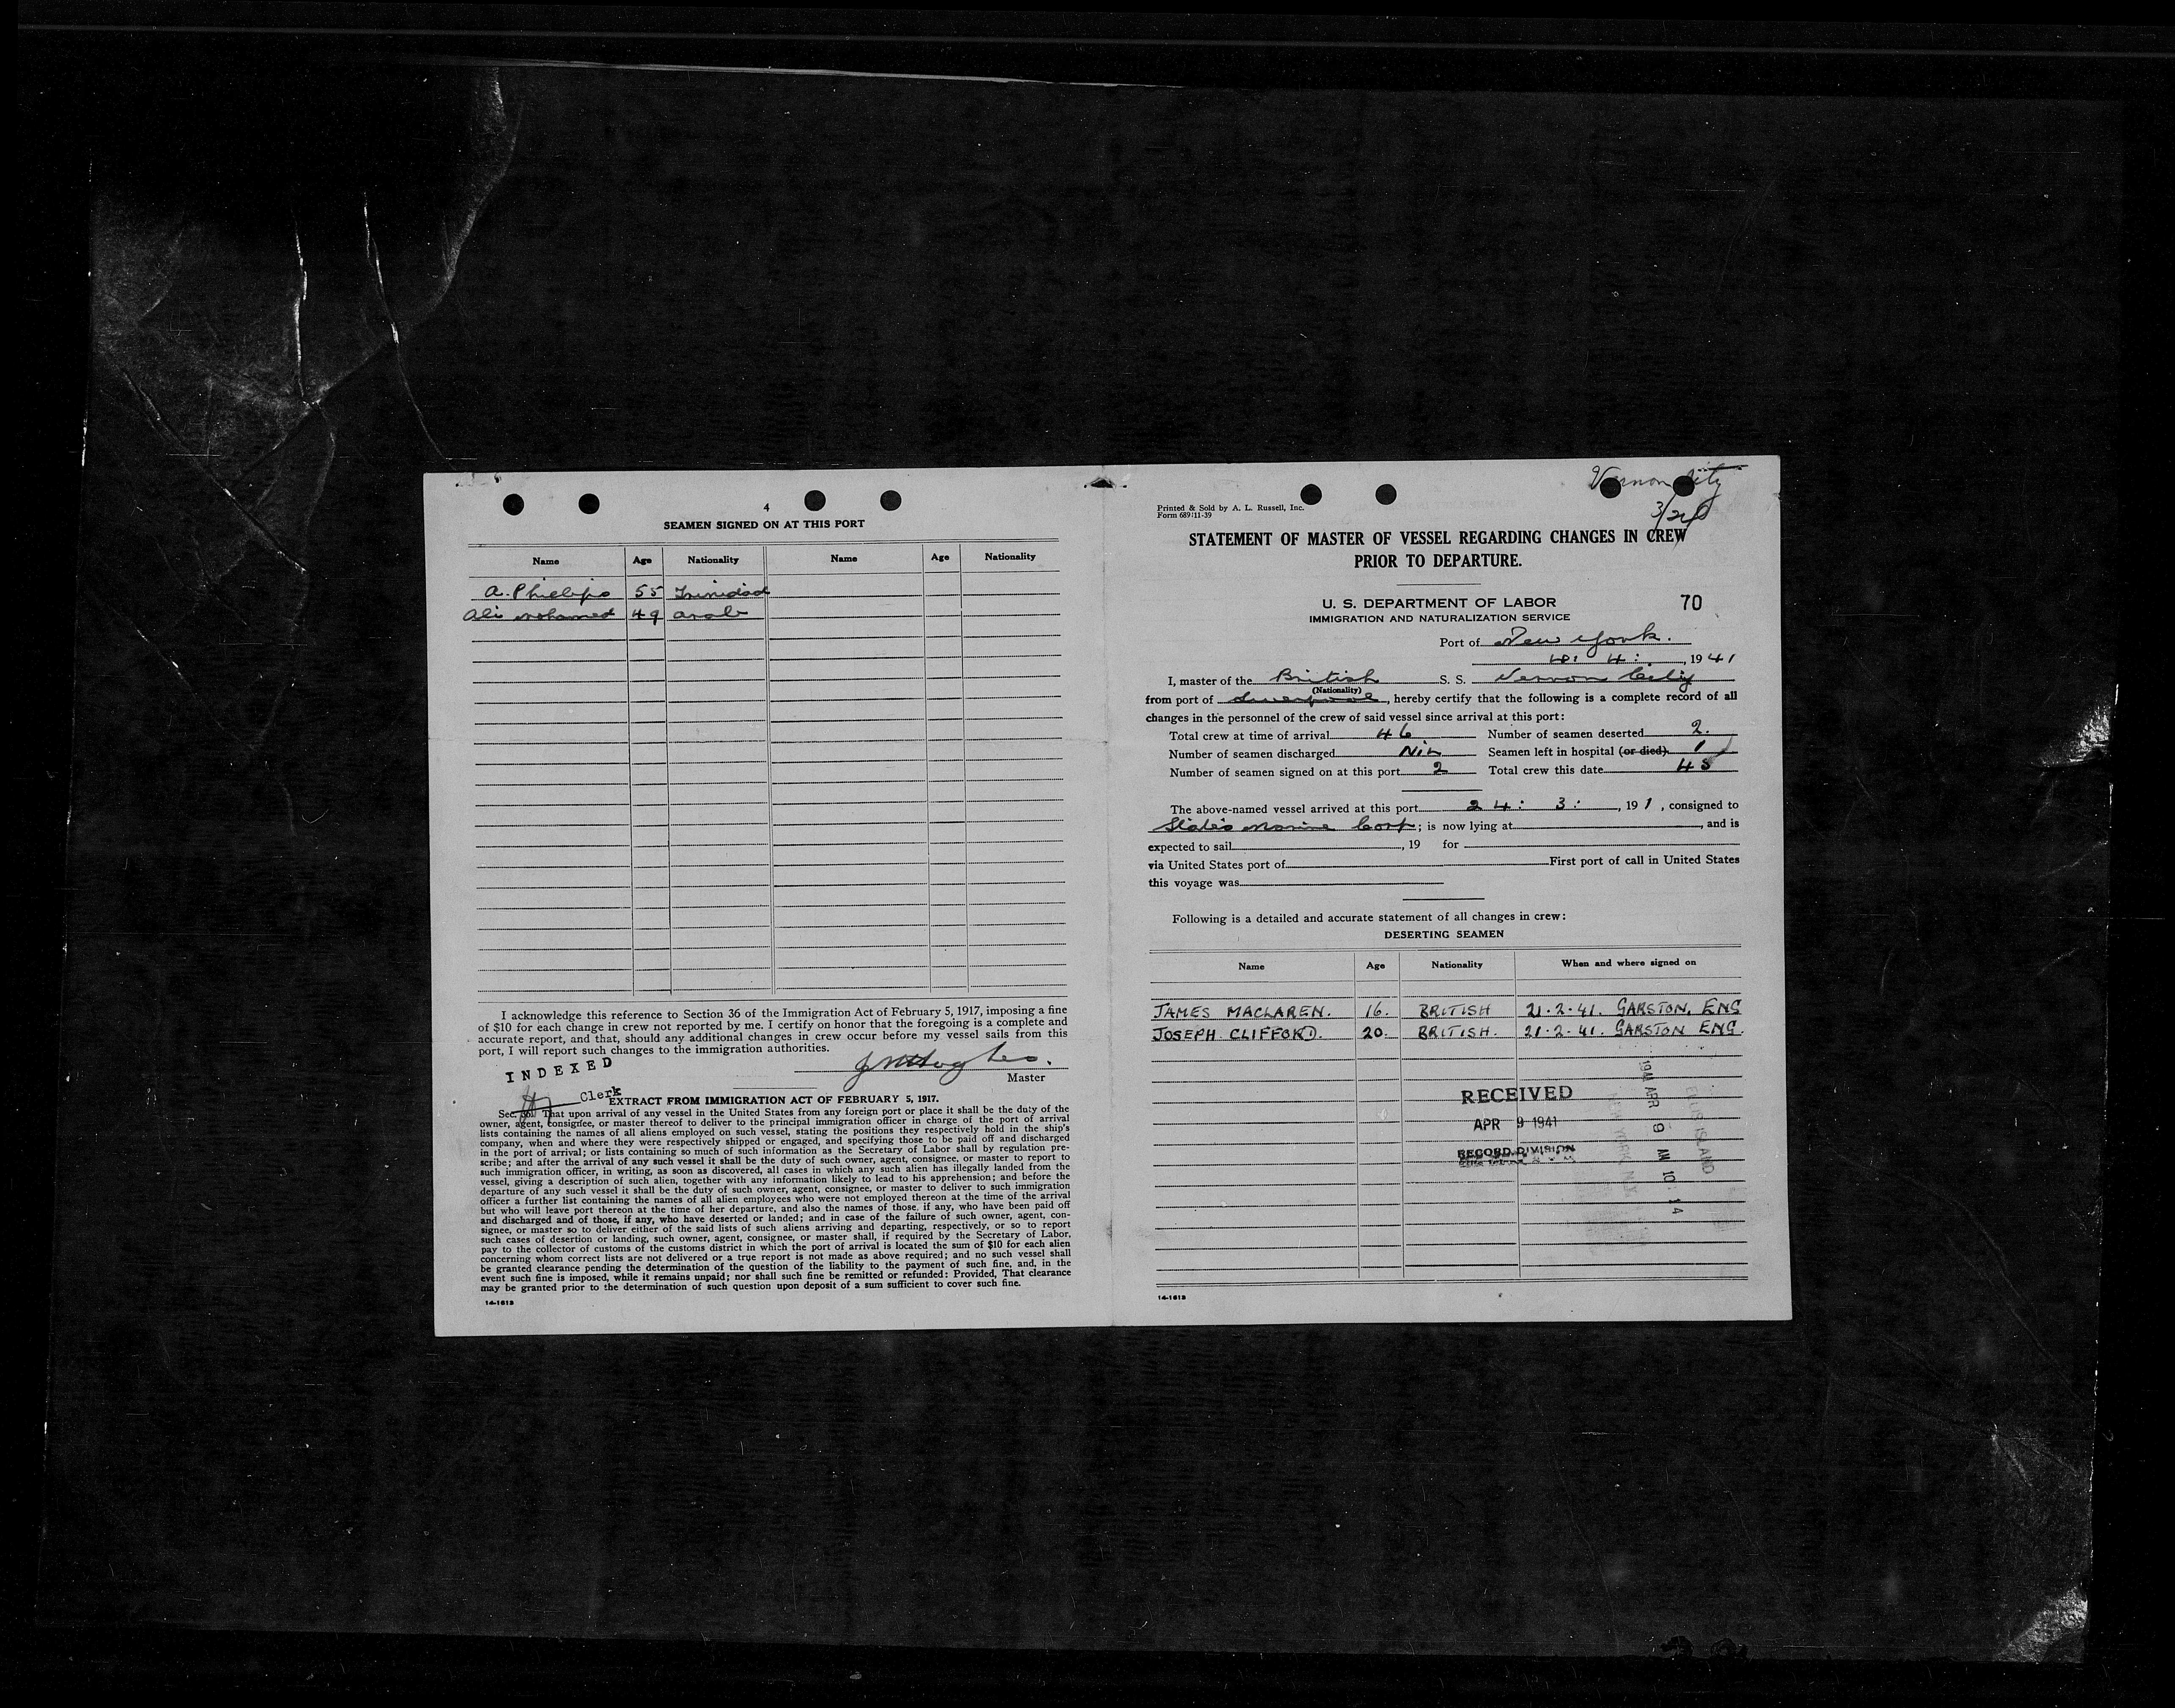 4
SEAMEN SIGNED ON AT THIS PORT
Name Age Nationality Name Age Nationality
A. Phielips 55 Trinidad
Ali Mohamed 49 Arab
I acknowledge this reference to Section 36 of the Immigration Act of February 5, 1917, imposing a fine
of $10 for each change in crew not reported by me. I certify on honor that the foregoing is a complete and
accurate report, and that, should any additional changes in crew occur before my vessel sails from this
port, I will report such changes to the immigration authorities.
INDEXED
Master
Clerk
EXTRACT FROM IMMIGRATION ACT OF FEBRUARY 5, 1917.
Sec. 36. That upon arrival of any vessel in the United States from any foreign port or place it shall be the duty of the
owner, agent, consignee, or master thereof to deliver to the principal immigration officer in charge of the port of arrival
lists containing the names of all aliens employed on such vessel, stating the positions they respectively hold in the ship's
company, when and where they were respectively shipped or engaged, and specifying those to be paid off and discharged
in the port of arrival; or lists containing so much of such information as the Secretary of Labor shall by regulation pre-
scribe; and after the arrival of any such vessel it shall be the duty of such owner, agent, consignee, or master to report to
such immigration officer, in writing, as soon as discovered, all cases in which any such alien has illegally landed from the
vessel, giving a description of such alien, together with any information likely to lead to his apprehension; and before the
departure of any such vessel it shall be the duty of such owner, agent, consignee, or master to deliver to such immigration
officer a further list containing the names of all alien employees who were not employed thereon at the time of the arrival
but who will leave port thereon at the time of her departure, and also the names of those, if any, who have been paid off
and discharged and of those, if any, who have deserted or landed; and in case of the failure of such owner, agent, con-
signee, or master so to deliver either of the said lists of such aliens arriving and departing, respectively, or so to report
such cases of desertion or landing, such owner, agent, consignee, or master shall, if required by the Secretary of Labor,
pay to the collector of customs of the customs district in which the port of arrival is located the sum of $10 for each alien
concerning whom correct lists are not delivered or a true report is not made as above required; and no such vessel shall
be granted clearance pending the determination of the question of the liability to the payment of such fine, and, in the
event such fine is imposed, while it remains unpaid; nor shall such fine be remitted or refunded: Provided, That clearance
may be granted prior to the determination of such question upon deposit of a sum sufficient to cover such fine.
14-1613
Vernon City
Printed & Sold by A. L. Russell, Inc.
Form 689:11-39
STATEMENT OF MASTER OF VESSEL REGARDING CHANGES IN CREW
PRIOR TO DEPARTURE.
U. S. DEPARTMENT OF LABOR 70
IMMIGRATION AND NATURALIZATION SERVICE
Port of New York.
4: , 1941
I, master of the British S. S. Vernon City
(Nationality)
from port of Liverpool, hereby certify that the following is a complete record of all
changes in the personnel of the crew of said vessel since arrival at this port:
Total crew at time of arrival 46 Number of seamen deserted 2.
Number of seamen discharged Nil Seamen left in hospital (or died) 1
Number of seamen signed on at this port 2 Total crew this date 45
The above-named vessel arrived at this port 24: 3: , 19 1, consigned to
States Marine Corp; is now lying at , and is
expected to sail , 19 for
via United States port of First port of call in United States
this voyage was
Following is a detailed and accurate statement of all changes in crew:
DESERTING SEAMEN
Name Age Nationality When and where signed on
JAMES MACLAREN. 16. BRITISH 21·2·41. GARSTON. ENG
JOSEPH CLIFFORD. 20. BRITISH. 21·2·41. GARSTON ENG.
RECEIVED
APR 9 1941
RECORD DIVISION
1941 APR 9 AM 10 14
ELLIS ISLAND
NEW YORK, N.Y.
14-1613